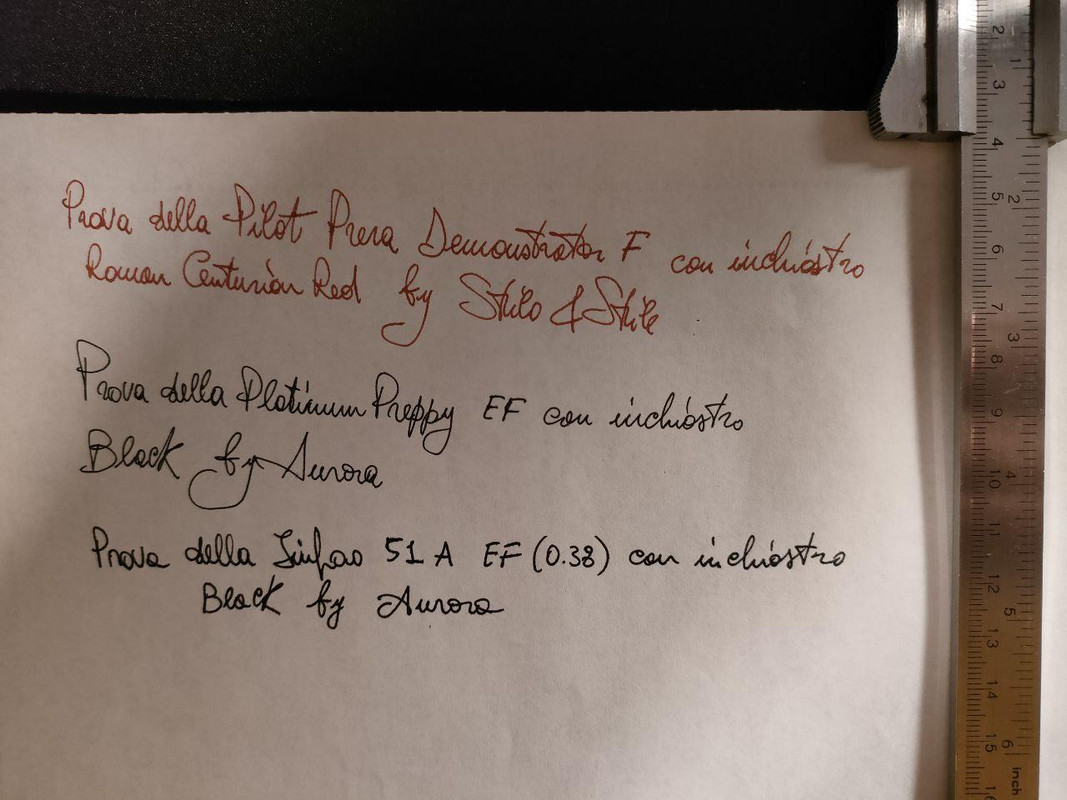 Prova della Pilot Prera Demonstrator F con inchiostro
Roman Centurion Red by Stilo & Stile
Prova della Platinum Preppy EF con inchiostro
Black by Aurora
Prova della Jinhao 51 A EF (0.38) con inchiostro
Black by Aurora
2
3
4
5
6
7
8
9
10
11
12
13
14
15
16
1
2
3
4
5
6
inch